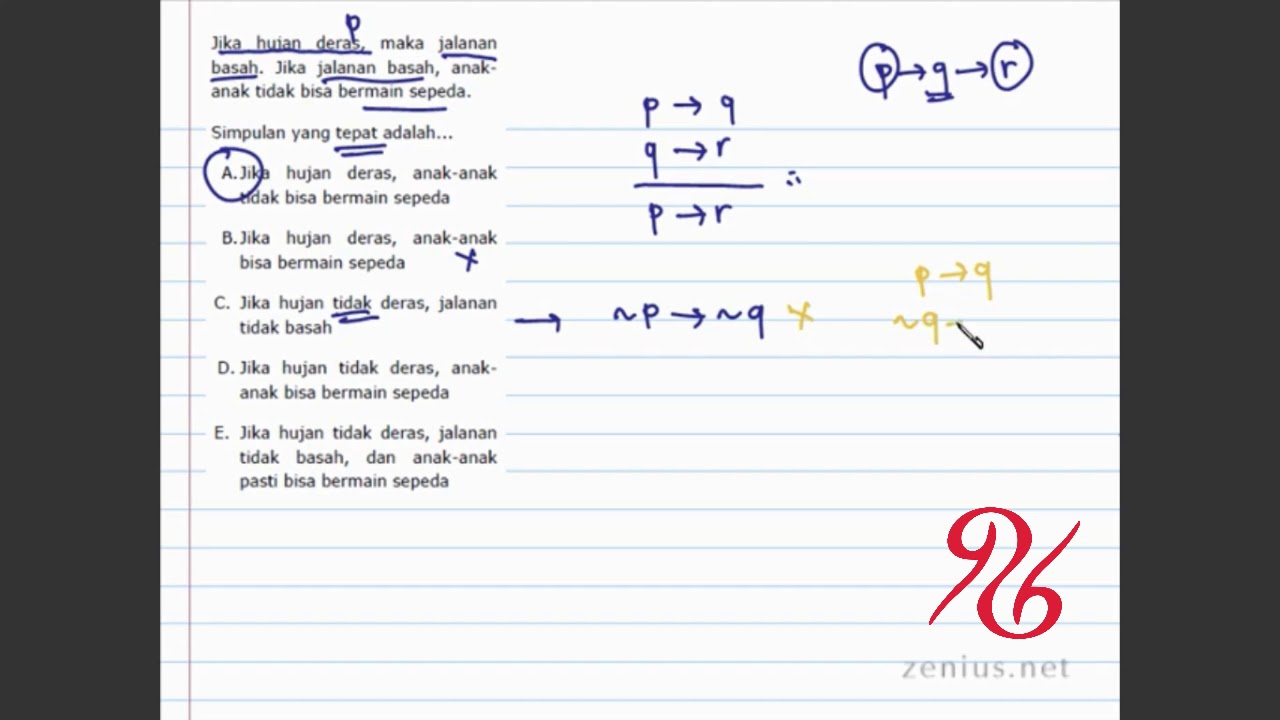 p
Jika hujan deras, maka jalanan
basah. Jika jalanan basah, anak-
anak tidak bisa bermain sepeda.
Simpulan yang tepat adalah...
A. Jika hujan deras, anak-anak
tidak bisa bermain sepeda
B. Jika hujan deras, anak-anak
bisa bermain sepeda
C. Jika hujan tidak deras, jalanan
tidak basah
D. Jika hujan tidak deras, anak-
anak bisa bermain sepeda
E. Jika hujan tidak deras, jalanan
tidak basah, dan anak-anak
pasti bisa bermain sepeda
p → q
q → r
∴
p → r
p → q → r
→ ~p → ~q ×
p → q
~q -
zenius.net